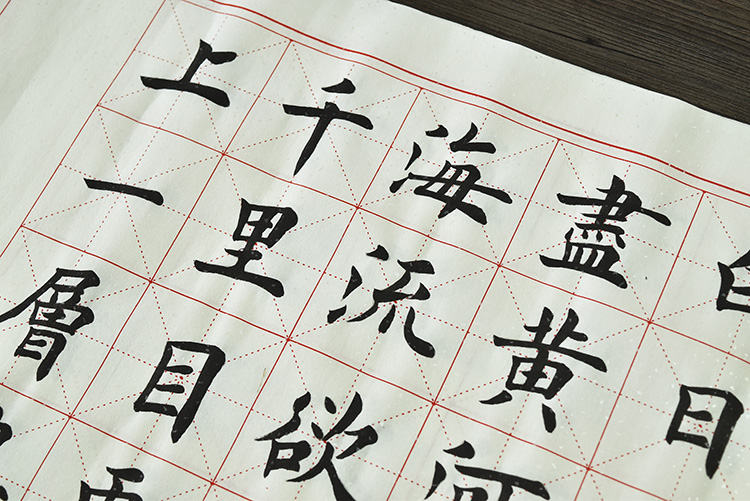 白日
盡黃河
海流欲
千里目更
上一層